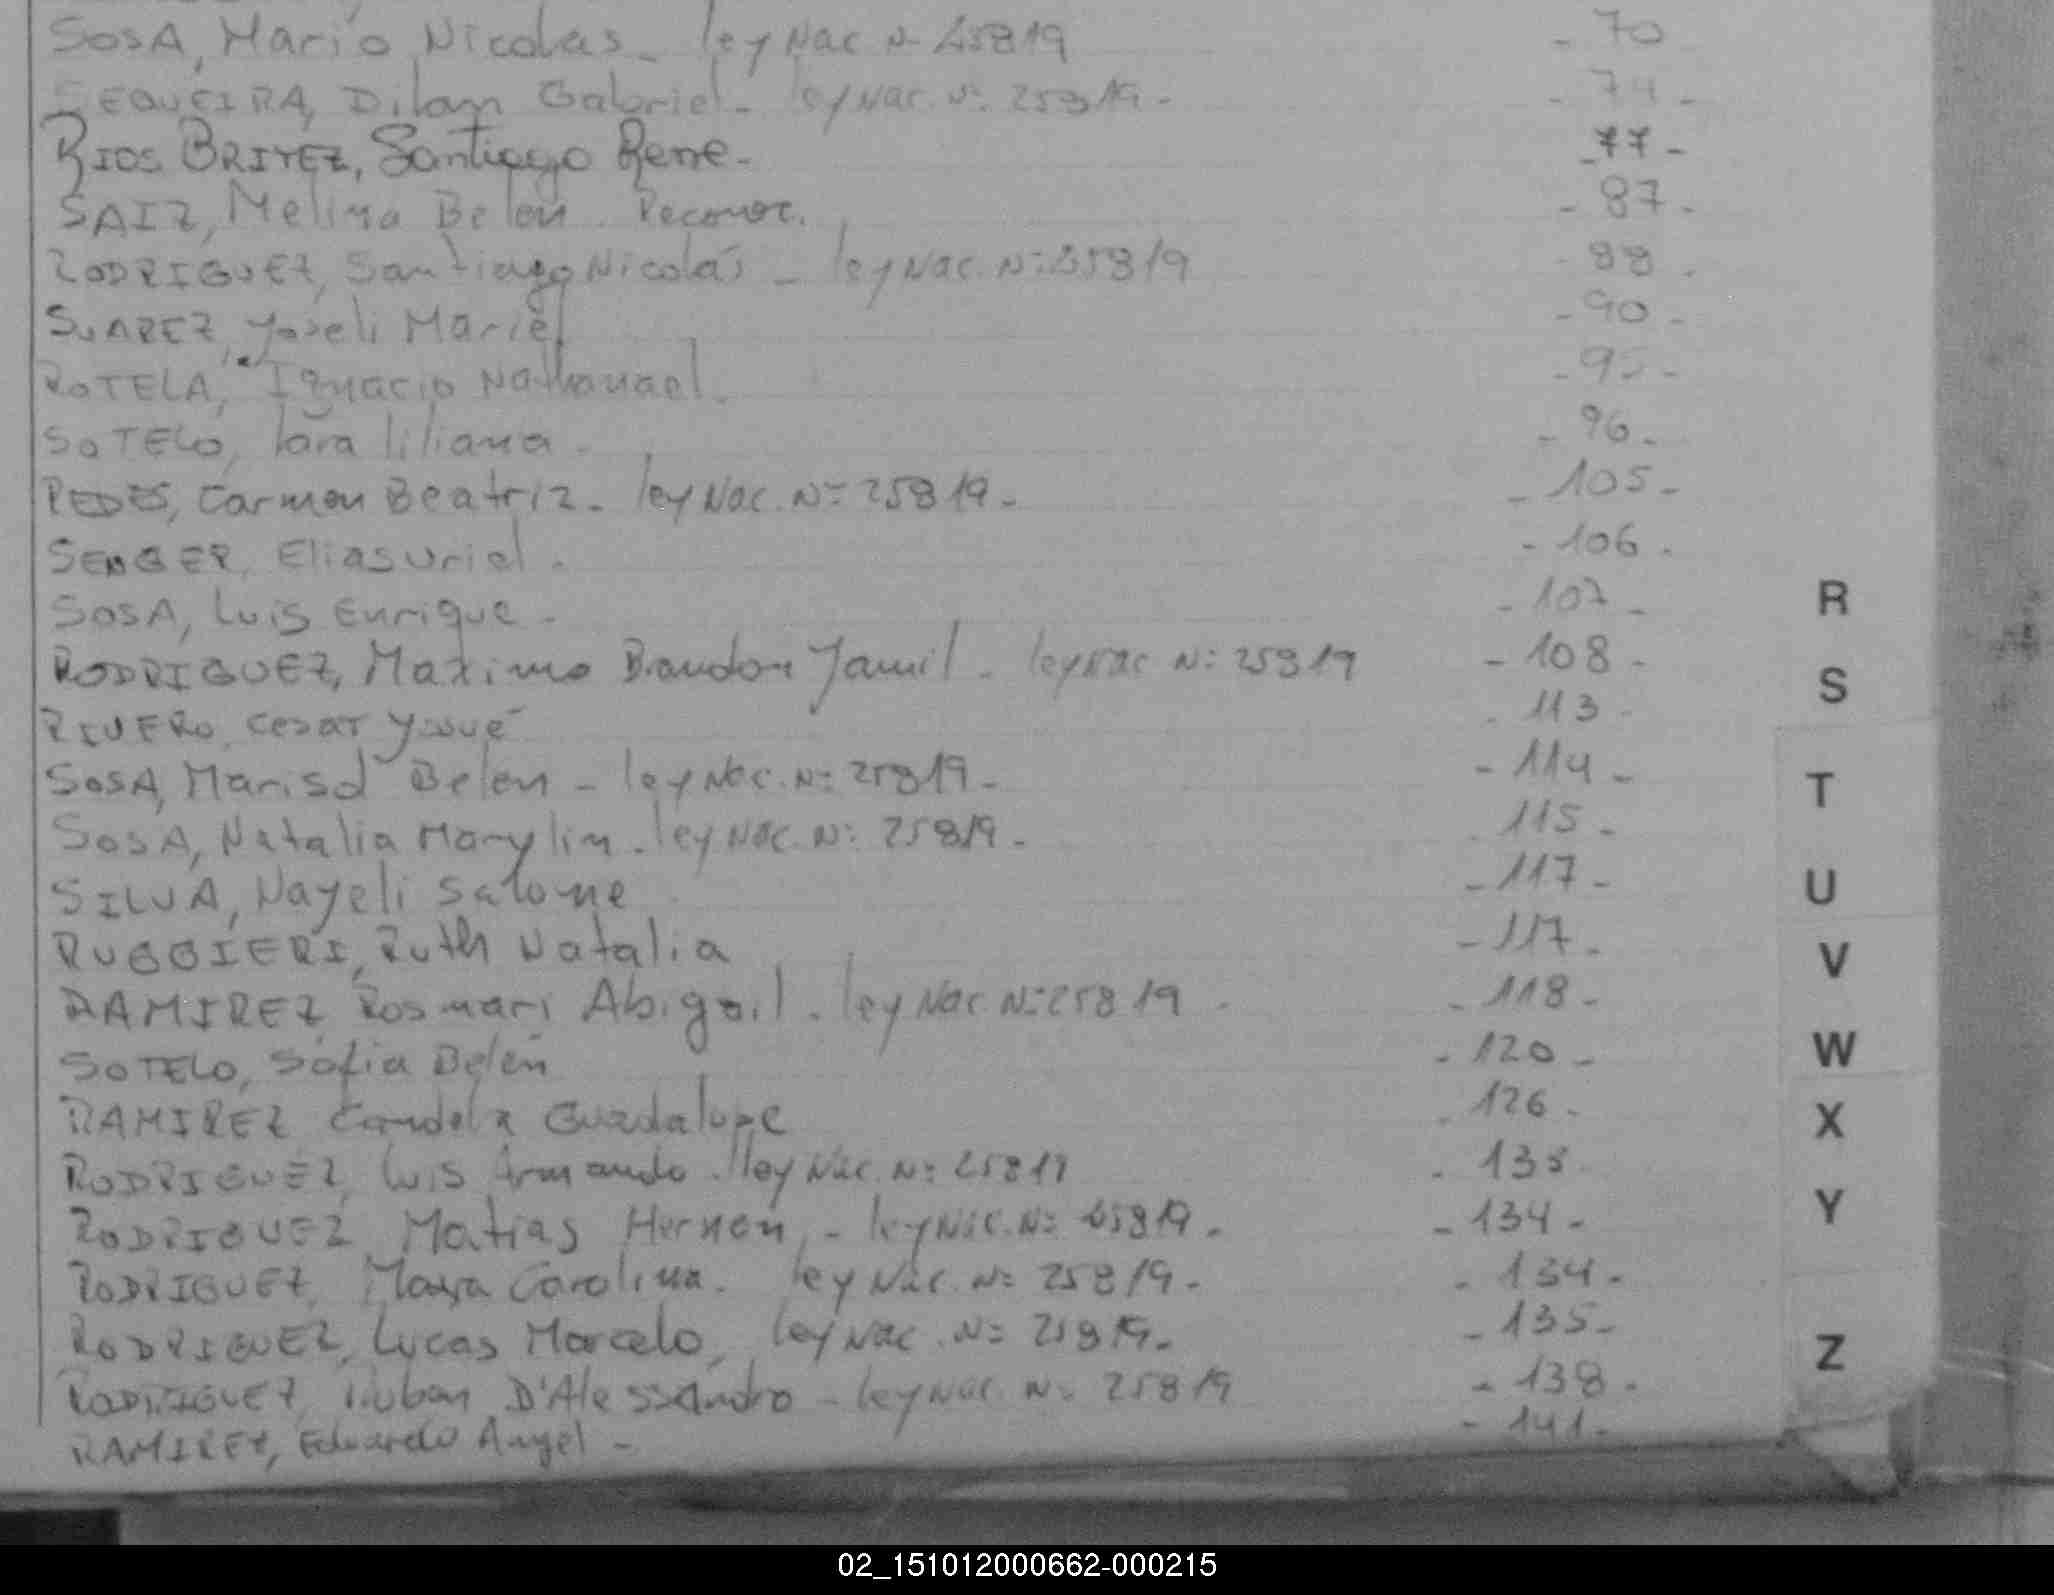 SOSA, Mario Nicolas - ley Nac N- 25819 - 70
SEQUEIRA, Dilan Gabriel - ley Nac. N: 25819 - - 74 -
RIOS BRITEZ, Santiago Rene - - 77 -
SAIZ, Melina Belen. Reconoc. - 87 -
RODRIGUEZ, Santiago Nicolás - ley Nac. N: 25819 - 88 .
SUAREZ, Yoseli Mariel - 90 -
ROTELA, Ignacio Nathanael. - 95 -
SOTELO, Iara liliana - - 96 -
Carmen Beatriz - ley Nac. N: 25819 - - 105 -
SENGER, Elias Uriel . - 106 .
SOSA, Luis Enrique - - 107 -
RODRIGUEZ, Maximo Brandon Jamil - ley Nac N: 25819 - 108 -
RIVERO, Cesar Josué . 113 -
SOSA, Marisol Belen - ley Nac. N: 25819 - - 114 -
SOSA, Natalia Marylin - ley Nac. N: 25819 - 115 -
SILVA, Nayeli Salome - 117 -
RUGGIERI, Ruth Natalia - 117 -
RAMIREZ Rosmari Abigail - ley Nac. N: 25819 - - 118 -
SOTELO, Sofia Belén - 120 -
RAMIREZ Candela Guadalupe . 126 -
RODRIGUEZ, Luis Armando - ley Nac. N: 25819 . 133
RODRIGUEZ, Matias Hernan, - ley Nac. N: 25819 - - 134 -
RODRIGUEZ, Mayra Carolina. ley Nac. N: 25819 - - 134 -
RODRIGUEZ, Lucas Marcelo, ley Nac. N: 25819 - - 135 -
RODRIGUEZ, Ruben D'Alessandro - ley Nac. N: 25819 - 138 -
RAMIREZ, Eduardo Angel - - 141 -
R
S
T
U
V
W
X
Y
Z
02_151012000662-000215